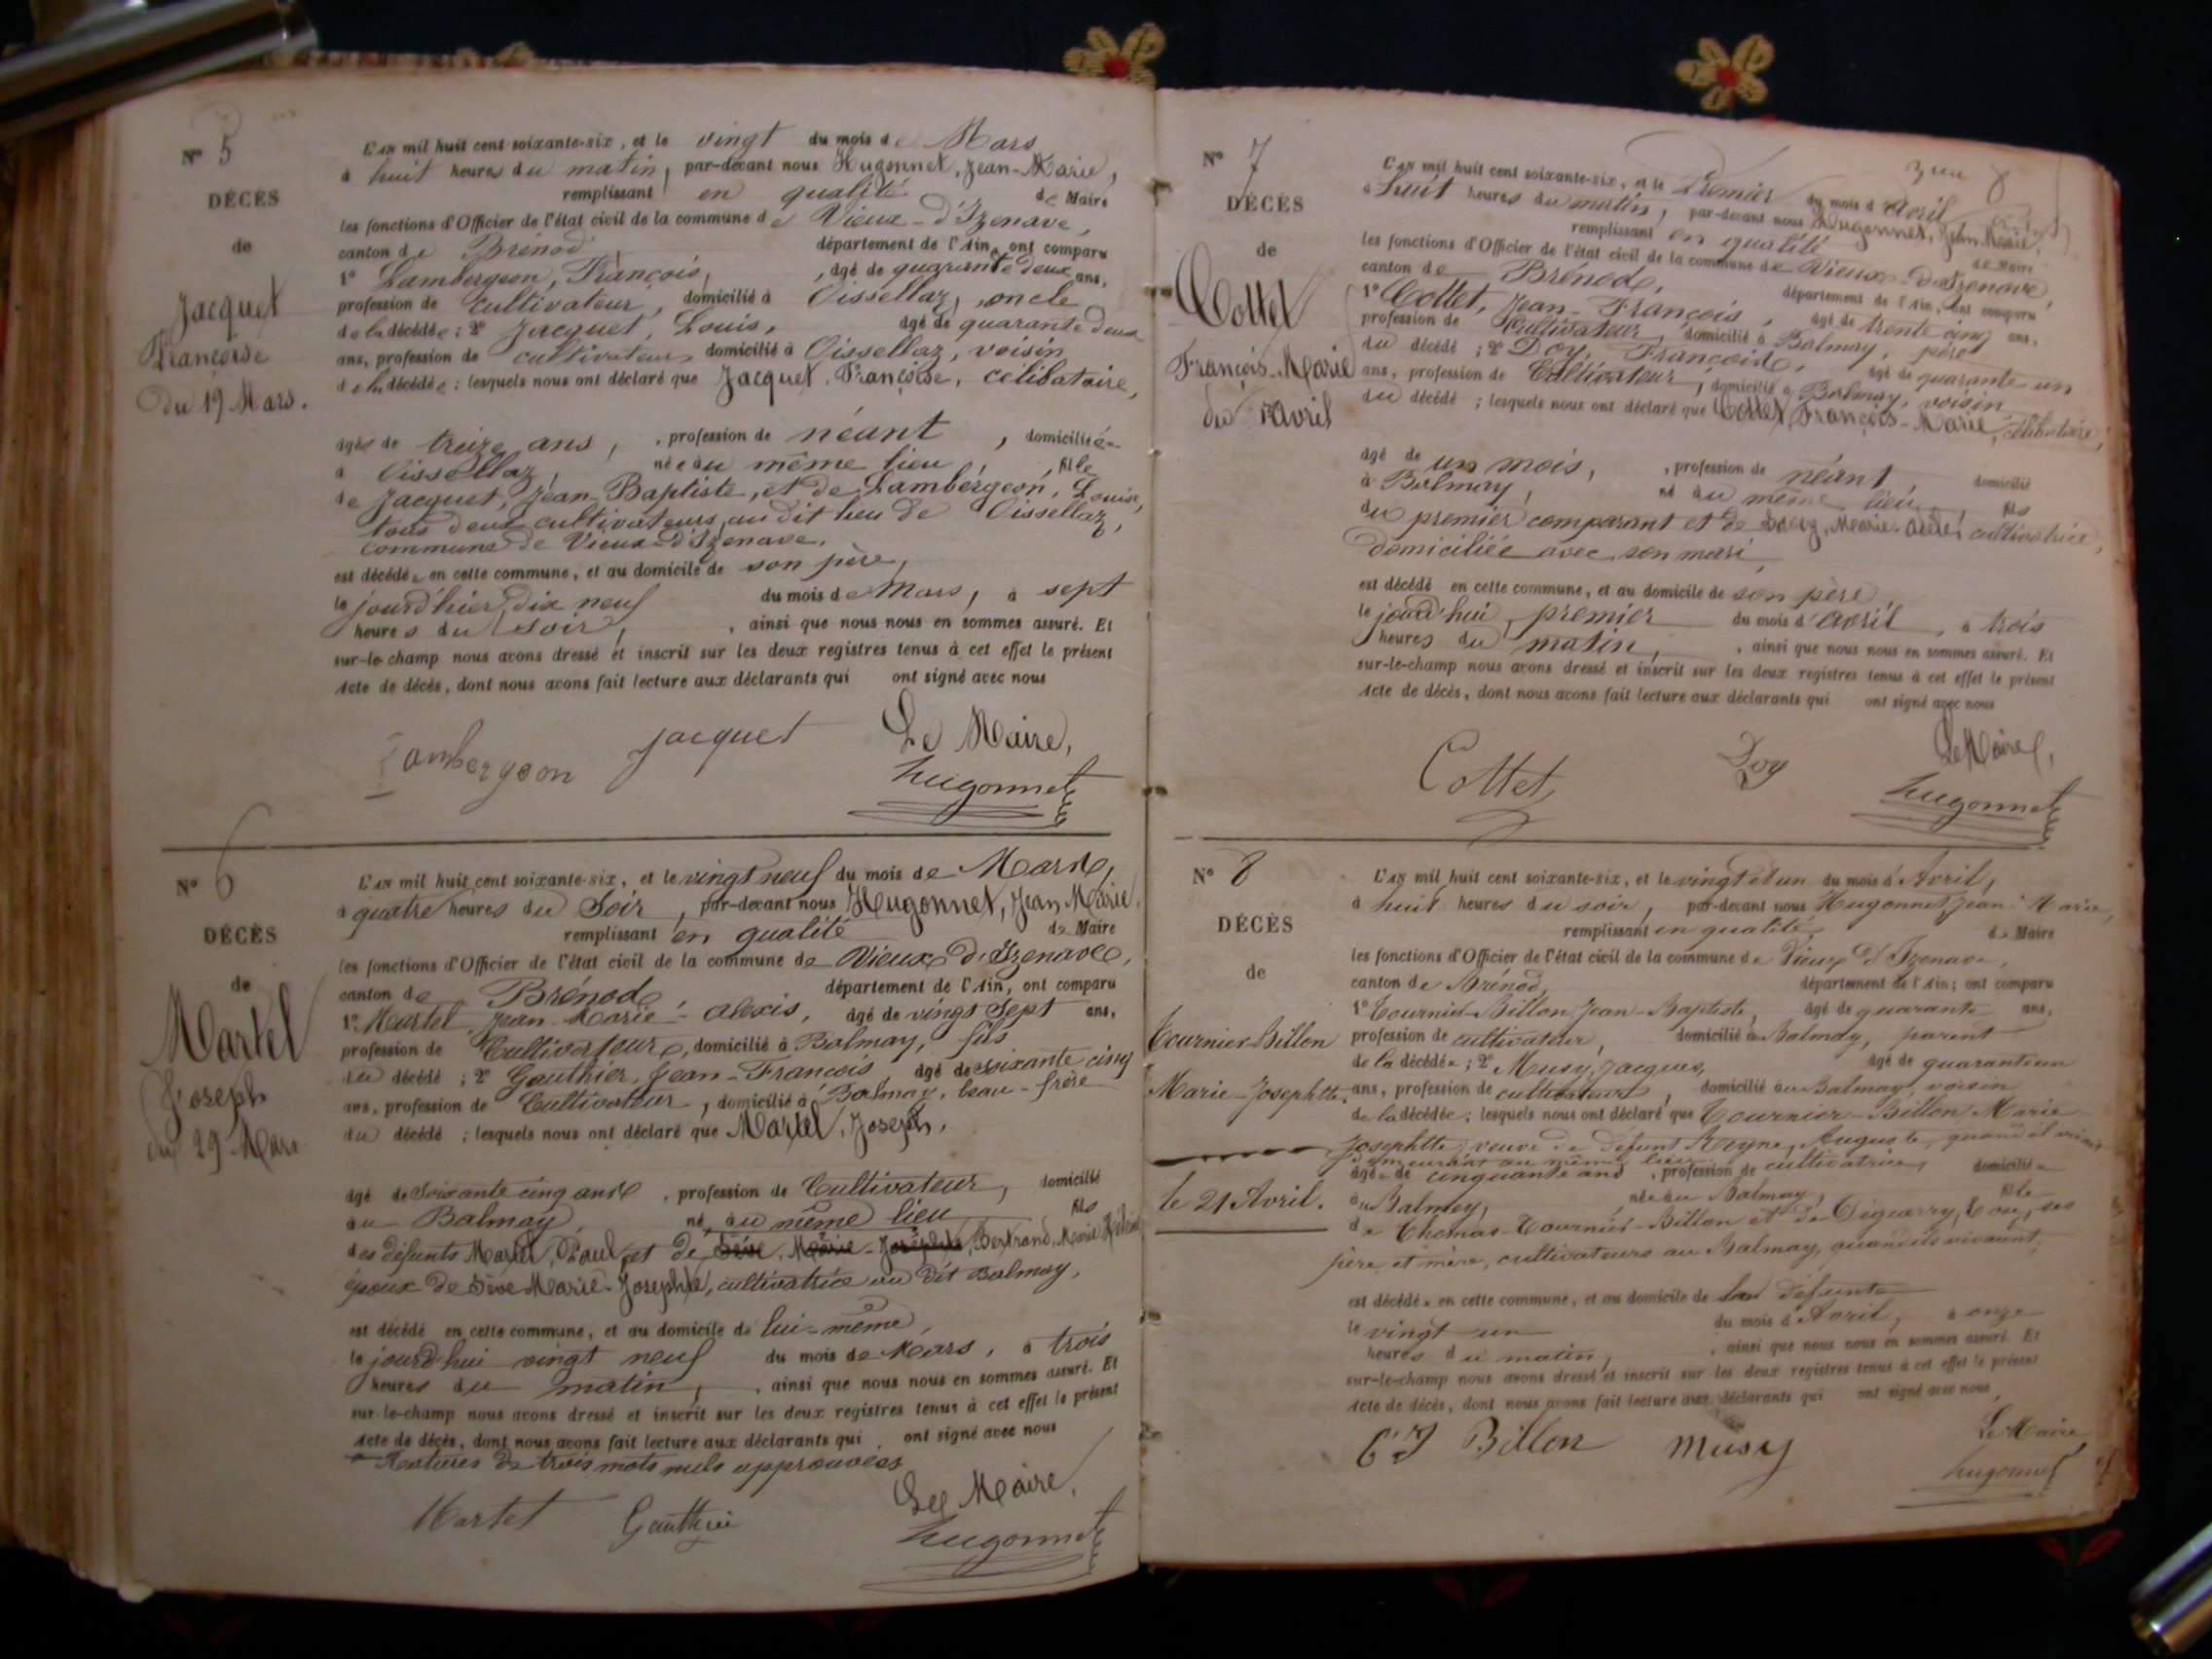 N° 5
DÉCÈS
de
Jacquet
Françoise
Du 19 Mars.
L'an mil huit cent soixante-six, et le vingt du mois de Mars
à huit heures du matin, par-devant nous Hugonnet, Jean-Marie,
remplissant en qualité de Maire
les fonctions d'Officier de l'état civil de la commune de Vieux-d'Izenave,
canton de Brénod département de l'Ain, ont comparu
1° Lambergeon, François, âgé de quarante deux ans,
profession de cultivateur, domicilié à Oissellaz, oncle
de la décédée; 2° Jacquet, Louis, âgé de quarante deux
ans, profession de cultivateur domicilié à Oissellaz, voisin
de la décédée; lesquels nous ont déclaré que Jacquet, Françoise, célibataire,
âgée de treize ans, profession de néant, domiciliée
à Oissellaz, née au même lieu, fille
de Jacquet, Jean-Baptiste, et de Lambergeon, Louise,
tous deux cultivateurs au dit lieu de Oissellaz,
commune de Vieux-d'Izenave.
est décédée en cette commune, et au domicile de son père,
le jourd'hier dix neuf du mois de Mars, à sept
heures du soir, ainsi que nous nous en sommes assuré. Et
sur-le-champ nous avons dressé et inscrit sur les deux registres tenus à cet effet le présent
Acte de décès, dont nous avons fait lecture aux déclarants qui ont signé avec nous
Lambergeon Jacquet Le Maire,
Hugonnet
N° 6
DÉCÈS
de
Martel
Joseph
du 29 Mars
L'an mil huit cent soixante-six, et le vingt neuf du mois de Mars,
à quatre heures du Soir, par-devant nous Hugonnet, Jean Marie,
remplissant en qualité de Maire
les fonctions d'Officier de l'état civil de la commune de Vieux d'Izenave,
canton de Brénod, département de l'Ain, ont comparu
1° Martel, Jean-Marie-Alexis, âgé de vingt sept ans,
profession de Cultivateur, domicilié à Balmay, fils
du décédé; 2° Gauthier, Jean-François, âgé de soixante cinq
ans, profession de Cultivateur, domicilié à Balmay, beau-frère
du décédé; lesquels nous ont déclaré que Martel, Joseph,
âgé de soixante cinq ans, profession de Cultivateur, domicilié
au Balmay, né au même lieu fils
des défunts Martel, Paul et de Sève, Marie-Josephte, Bertrand, Marie
époux de Sève Marie-Josephte, cultivatrice au dit Balmay,
est décédé en cette commune, et au domicile de lui-même,
le jourd'hui vingt neuf du mois de Mars, à trois
heures du matin, ainsi que nous nous en sommes assuré. Et
sur-le-champ nous avons dressé et inscrit sur les deux registres tenus à cet effet le présent
Acte de décès, dont nous avons fait lecture aux déclarants qui ont signé avec nous
Ratures de trois mots nuls approuvées
Martel Gauthier Le Maire,
Hugonnet
N° 7
DÉCÈS
de
Cottet
François-Marie
du 1er Avril
8
L'an mil huit cent soixante-six, et le Premier du mois d'Avril
à huit heures du matin, par-devant nous Hugonnet, Jean Marie,
remplissant en qualité de Maire
les fonctions d'Officier de l'état civil de la commune de Vieux-d'Izenave,
canton de Brénod, département de l'Ain, ont comparu
1° Cottet, Jean-François, âgé de trente cinq ans,
profession de Cultivateur, domicilié à Balmay, père
du décédé; 2° Doy, François, âgé de quarante un
ans, profession de Cultivateur, domicilié à Balmay, voisin
du décédé; lesquels nous ont déclaré que Cottet, François-Marie, célibataire,
âgé de un mois, profession de néant, domicilié
à Balmay, né au même lieu fils
du premier comparant et de Marie cultivatrice,
domiciliée avec son mari,
est décédé en cette commune, et au domicile de son père,
le jourd'hui, premier du mois d'avril, à trois
heures du matin, ainsi que nous nous en sommes assuré. Et
sur-le-champ nous avons dressé et inscrit sur les deux registres tenus à cet effet le présent
Acte de décès, dont nous avons fait lecture aux déclarants qui ont signé avec nous
Cottet Doy Le Maire,
Hugonnet
N° 8
DÉCÈS
de
Tournier-Billon
Marie-Josephtte
le 21 Avril.
L'an mil huit cent soixante-six, et le vingt et un du mois d'Avril,
à huit heures du soir, par-devant nous Hugonnet, Jean-Marie,
remplissant en qualité de Maire
les fonctions d'Officier de l'état civil de la commune de Vieux d'Izenave,
canton de Brénod, département de l'Ain; ont comparu
1° Tournier-Billon, Jean-Baptiste, âgé de quarante ans,
profession de cultivateur, domicilié à Balmay, parent
de la décédée; 2° Musy, Jacques, âgé de quarante un
ans, profession de cultivateur, domicilié au Balmay, voisin
de la décédée; lesquels nous ont déclaré que Tournier-Billon Marie
Josephtte, veuve de défunt Auguste, quand il vivait
demeurant au même lieu
âgée de cinquante ans, profession de cultivatrice, domiciliée
au Balmay, née au Balmay, fille
de Thomas-Tournier-Billon et de ses
père et mère, cultivateurs au Balmay, quand ils vivaient,
est décédée en cette commune, et au domicile de la défunte
le vingt un du mois d'Avril, à onze
heures du matin, ainsi que nous nous en sommes assuré. Et
sur-le-champ nous avons dressé et inscrit sur les deux registres tenus à cet effet le présent
Acte de décès, dont nous avons fait lecture aux déclarants qui ont signé avec nous,
Billon Musy Le Maire
Hugonnet